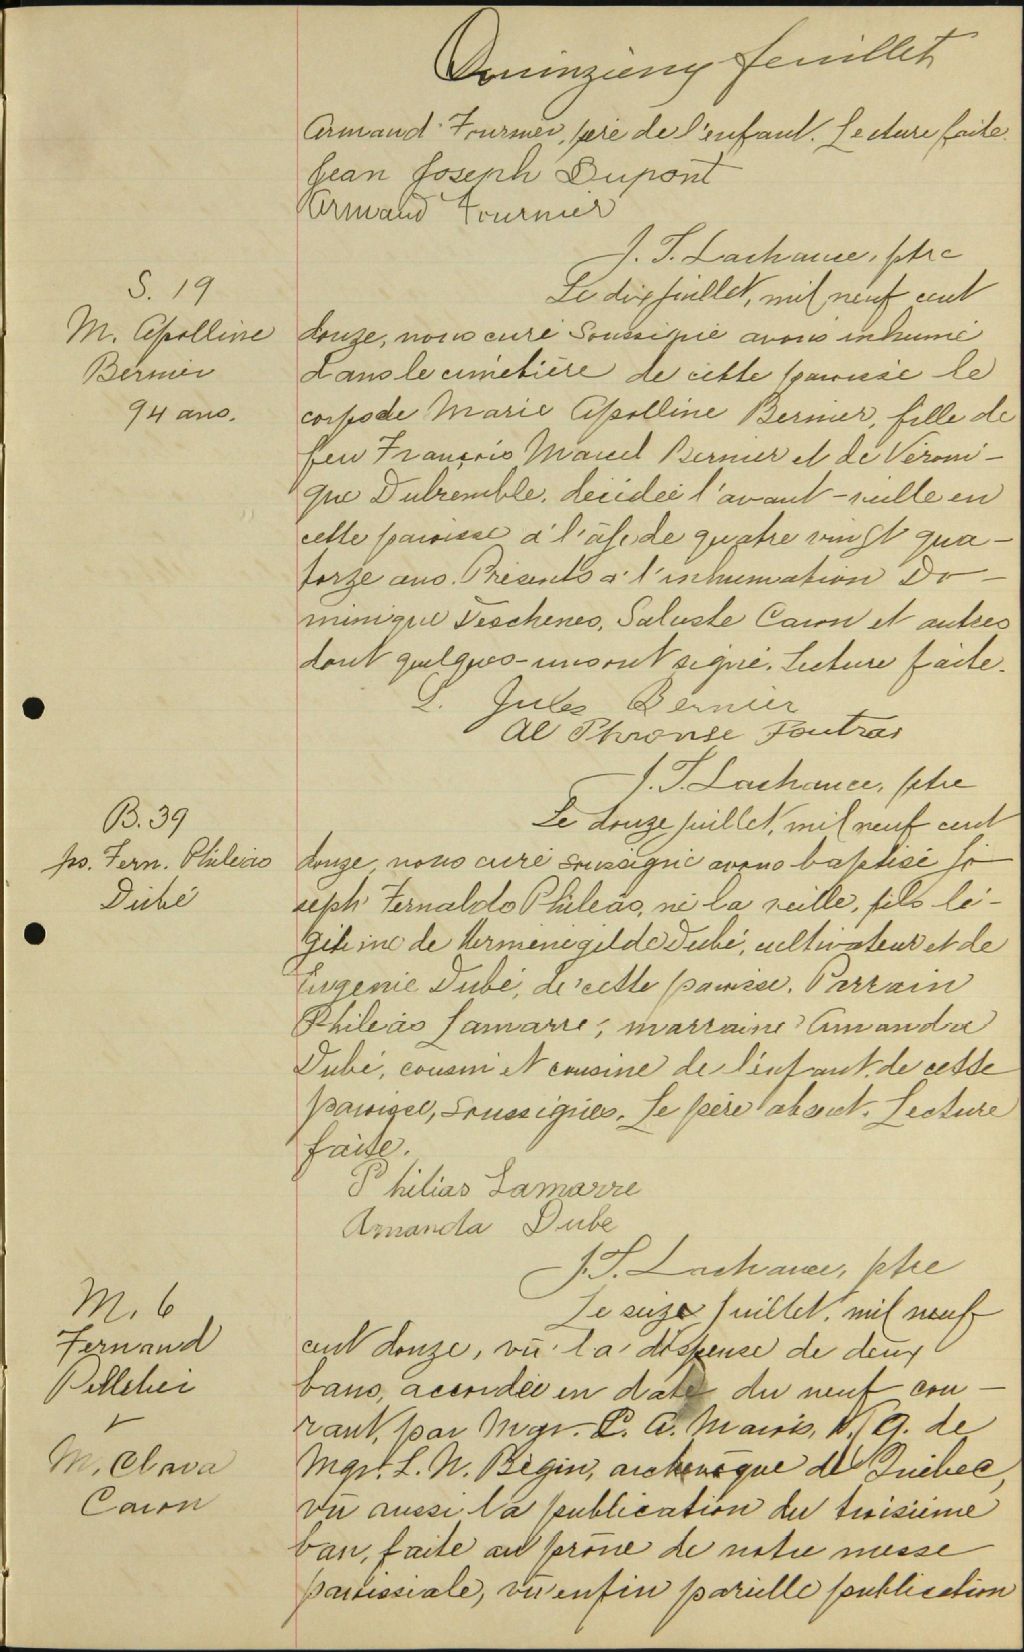 Quinzième feuillet
Armand Fournier, père de l'enfant. Lecture faite.
Jean Joseph Dupont
Armand Fournier
J. T. Lachance, ptre
S. 19
M. Apolline
Bernier
94 ans.
Le dix juillet, mil neuf cent
douze, nous curé soussigné avons inhumé
dans le cimetière de cette paroisse le
corps de Marie Apolline Bernier, fille de
feu François Marcel Bernier et de Véroni-
que Dutremble, décédée l'avant-veille en
cette paroisse à l'âge de quatre vingt qua-
torze ans. Présents à l'inhumation Do-
minique Deschenes, Saluste Caron et autres
dont quelques-uns ont signé. Lecture faite.
L. Jules Bernier
Al Phronse Poutras
J. T. Lachance, ptre
B. 39
Js. Fern. Philéas
Dubé
Le douze juillet, mil neuf cent
douze, nous curé soussigné avons baptisé Jo
seph Fernaldo Philéas, né la veille, fils lé-
gitime de Herménégilde Dubé, cultivateur et de
Eugénie Dubé, de cette paroisse. Parrain
Philéas Lamarre, marraine Amanda
Dubé, cousin et cousine de l'enfant, de cette
paroisse, soussignés. Le père absent. Lecture
faite.
Philias Lamarre
Amanda Dube
J. T. Lachance, ptre
M. 6
Fernand
Pelletier
+
M. Clara
Caron
Le seize juillet, mil neuf
cent douze, vû la dispense de deux
bans, accordée en date du neuf cou-
rant, par Mgr. C. A. Marois, V. G. de
Mgr. L. N. Bégin, archevêque de Québec,
vû aussi la publication du troisième
ban, faite au prône de notre messe
paroissiale, vû enfin pareille publication